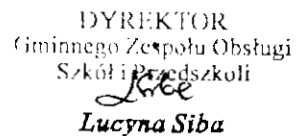 DYREKTOR
Gminnego Zespołu Obsługi
Szkół i Przedszkoli
Lucyna Siba